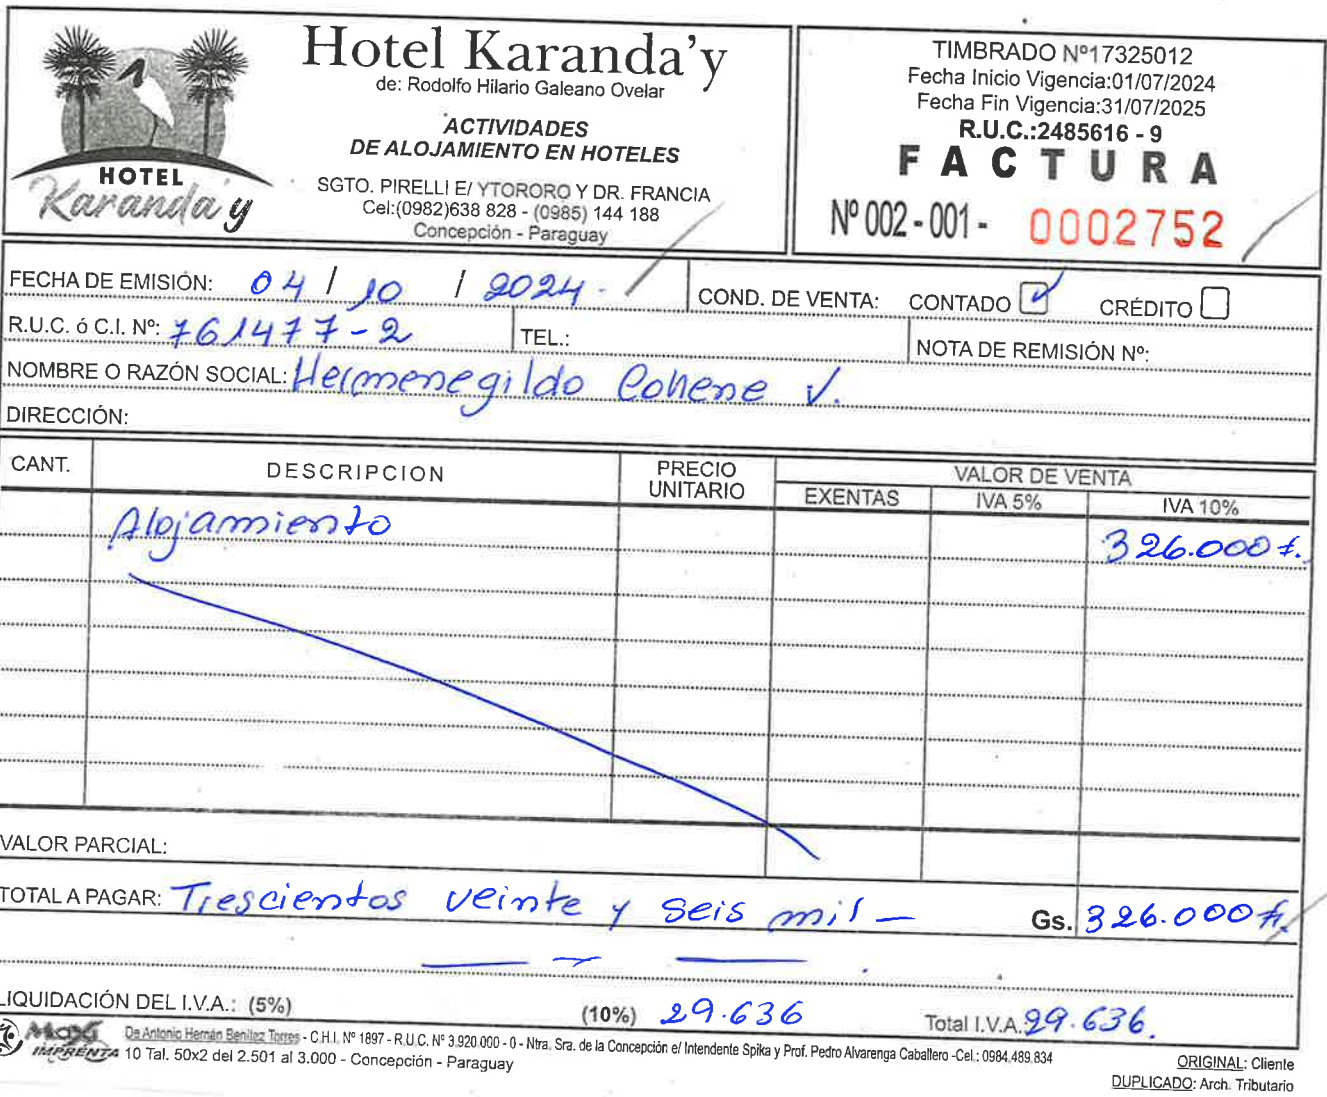 Hotel Karanda'y
de: Rodolfo Hilario Galeano Ovelar
ACTIVIDADES
DE ALOJAMIENTO EN HOTELES
SGTO. PIRELLI E/ YTORORO Y DR. FRANCIA
Cel:(0982)638 828 - (0985) 144 188
Concepción - Paraguay
HOTEL
Karanda'y
TIMBRADO Nº17325012
Fecha Inicio Vigencia:01/07/2024
Fecha Fin Vigencia:31/07/2025
R.U.C.:2485616 - 9
FACTURA
Nº 002 - 001 - 0002752
FECHA DE EMISIÓN: 04 / 10 / 2024.
COND. DE VENTA: CONTADO CRÉDITO
R.U.C. ó C.I. Nº: 761477-2 TEL.: NOTA DE REMISIÓN Nº:
NOMBRE O RAZÓN SOCIAL: Hermenegildo Cohene V.
DIRECCIÓN:
CANT. DESCRIPCION PRECIO UNITARIO VALOR DE VENTA
EXENTAS IVA 5% IVA 10%
Alojamiento 326.000
VALOR PARCIAL:
TOTAL A PAGAR: Trescientos veinte y seis mil — Gs. 326.000
LIQUIDACIÓN DEL I.V.A.: (5%) (10%) 29.636 Total I.V.A. 29.636.
Maxi IMPRENTA
De Antonio Hernán Benítez Torres - C.H.I. Nº 1897 - R.U.C. Nº 3.920.000 - 0 - Ntra. Sra. de la Concepción e/ Intendente Spika y Prof. Pedro Alvarenga Caballero -Cel.: 0984.489.834
10 Tal. 50x2 del 2.501 al 3.000 - Concepción - Paraguay
ORIGINAL: Cliente
DUPLICADO: Arch. Tributario